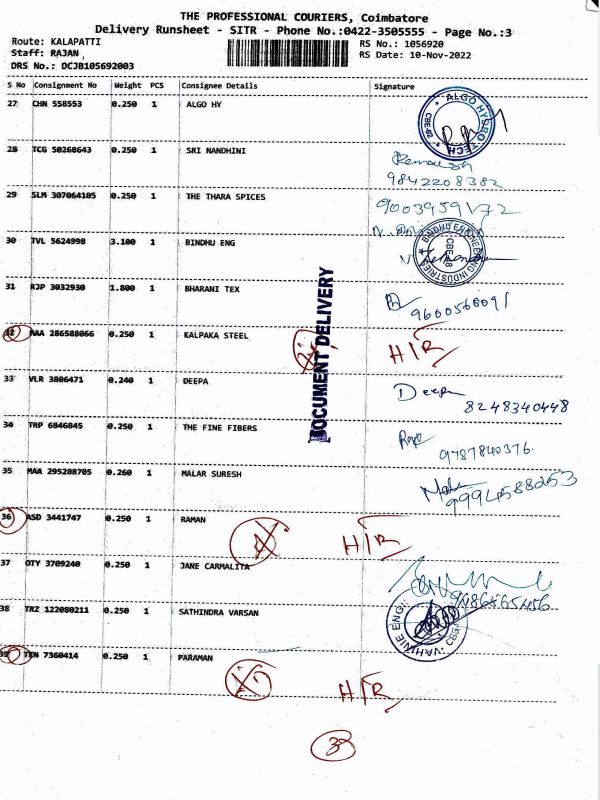 THE PROFESSIONAL COURIERS, Coimbatore
Delivery Runsheet - SITR - Phone No.:0422-3505555 - Page No.:3
Route: KALAPATTI RS No.: 1056920
Staff: RAJAN RS Date: 10-Nov-2022
DRS No.: DCJB105692003
S No Consignment No Weight PCS Consignee Details Signature
27 CHN 558553 0.250 1 ALGO HY
ALGO HYDROTECH CBE-62
28 TCG 50268643 0.250 1 SRI NANDHINI
9842208382
29 SLM 307064105 0.250 1 THE THARA SPICES
9003959172
30 TVL 5624998 3.100 1 BINDHU ENG
BINDHU ENGINEERING INDUSTRIES
31 RJP 3032930 1.800 1 BHARANI TEX
9600568091
32 MAA 286588066 0.250 1 KALPAKA STEEL H/R
33 VLR 3806471 0.240 1 DEEPA Deepa
8248340448
34 TRP 6846845 0.250 1 THE FINE FIBERS
9787840376
DOCUMENT DELIVERY
35 MAA 295288705 0.260 1 MALAR SURESH
9994588253
36 ASD 3441747 0.250 1 RAMAN H/R
37 OTY 3709240 0.250 1 JANE CARMALITA
38 TRZ 122080211 0.250 1 SATHINDRA VARSAN
39 TEN 7360414 0.250 1 PARAMAN H/R